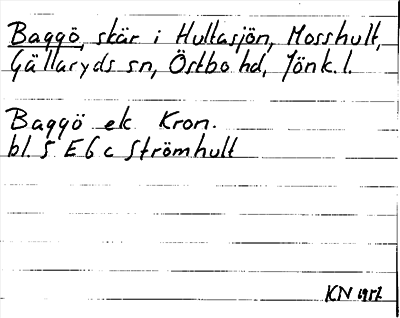 Baggö, skär i Hultasjön, Mosshult,
Gällaryds sn, Östbo hd, Jönk. l.
Baggö ek Kron.
bl. 5 E 6 c Strömhult
KN